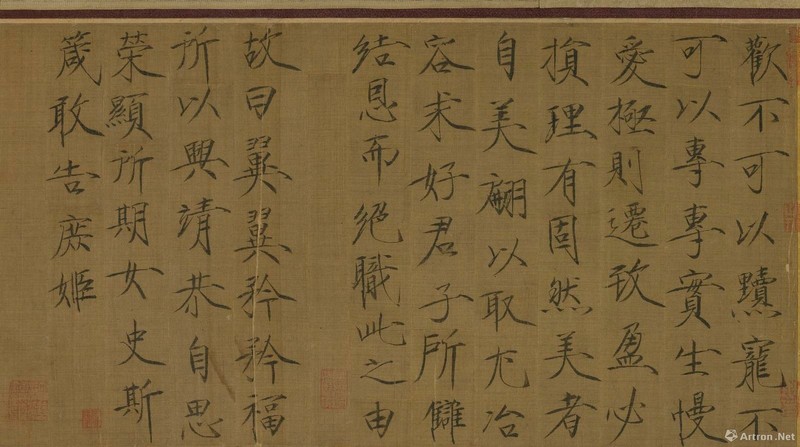 歡不可以黷寵不
可以專專實生慢
愛極則遷致盈必
損理有固然美者
自美翩以取尤冶
容求好君子所讎
結恩而絕職此之由
故曰翼翼矜矜福
所以興靖恭自思
榮顯所期女史斯
箴敢告庶姬
Artron.Net